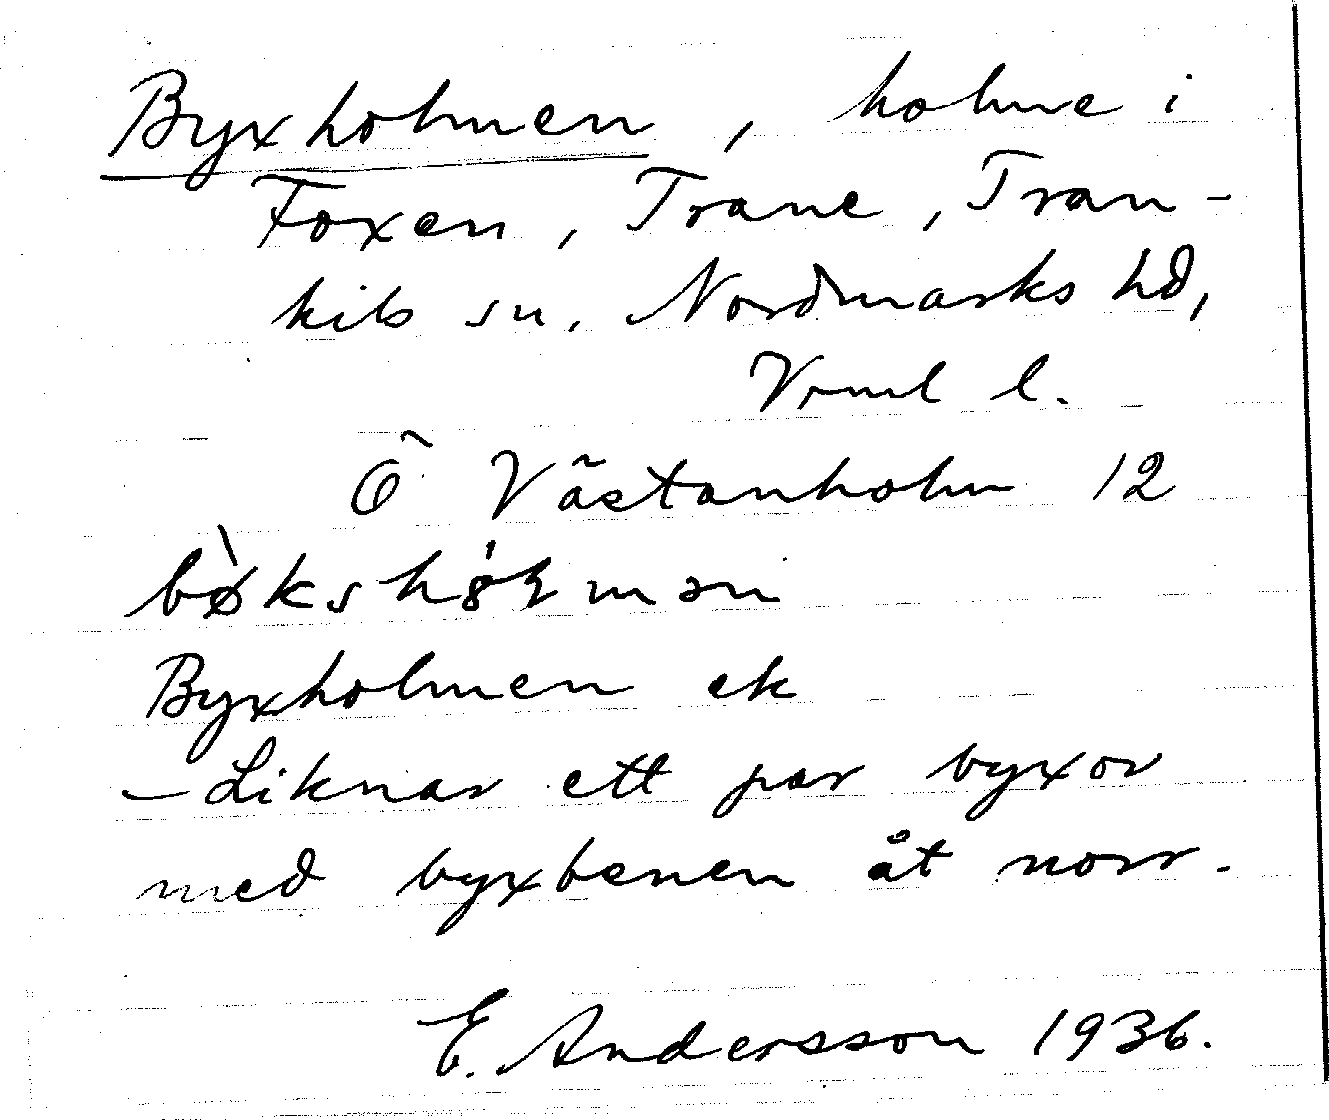 Byxholmen, holme i
Foxen, Trane, Tran-
kils sn, Nordmarks hd,
Vrml l.
Ö Västanholm 12
Byxholmen ek
- Liknar ett par byxor
med byxbenen åt norr.
E. Andersson 1936.